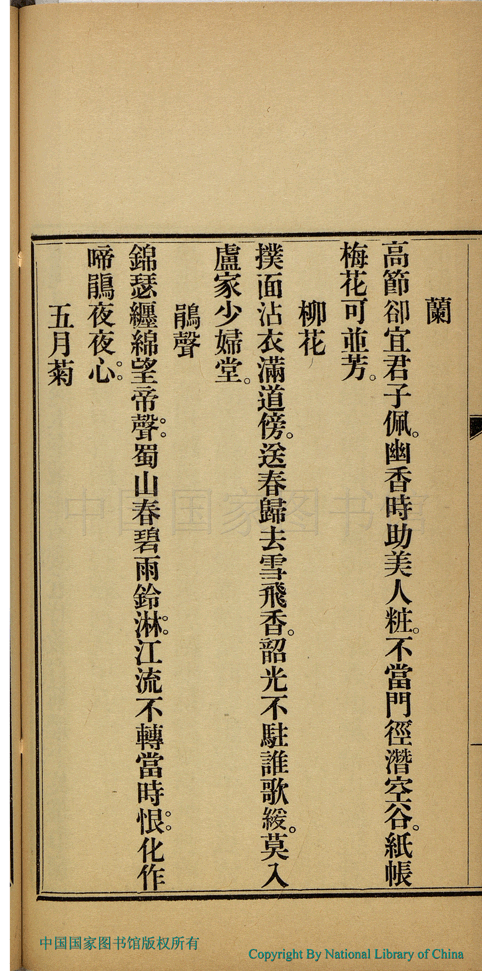 蘭
高節卻宜君子佩。幽香時助美人粧。不當門徑潛空谷。紙帳
梅花可並芳。
柳花
撲面沾衣滿道傍。送春歸去雪飛香。韶光不駐誰歌緩。莫入
盧家少婦堂。
鵑聲
錦瑟纏綿望帝聲。蜀山春碧雨鈴淋。江流不轉當時恨。化作
啼鵑夜夜心。
五月菊
中国国家图书馆
中国国家图书馆版权所有
Copyright By National Library of China